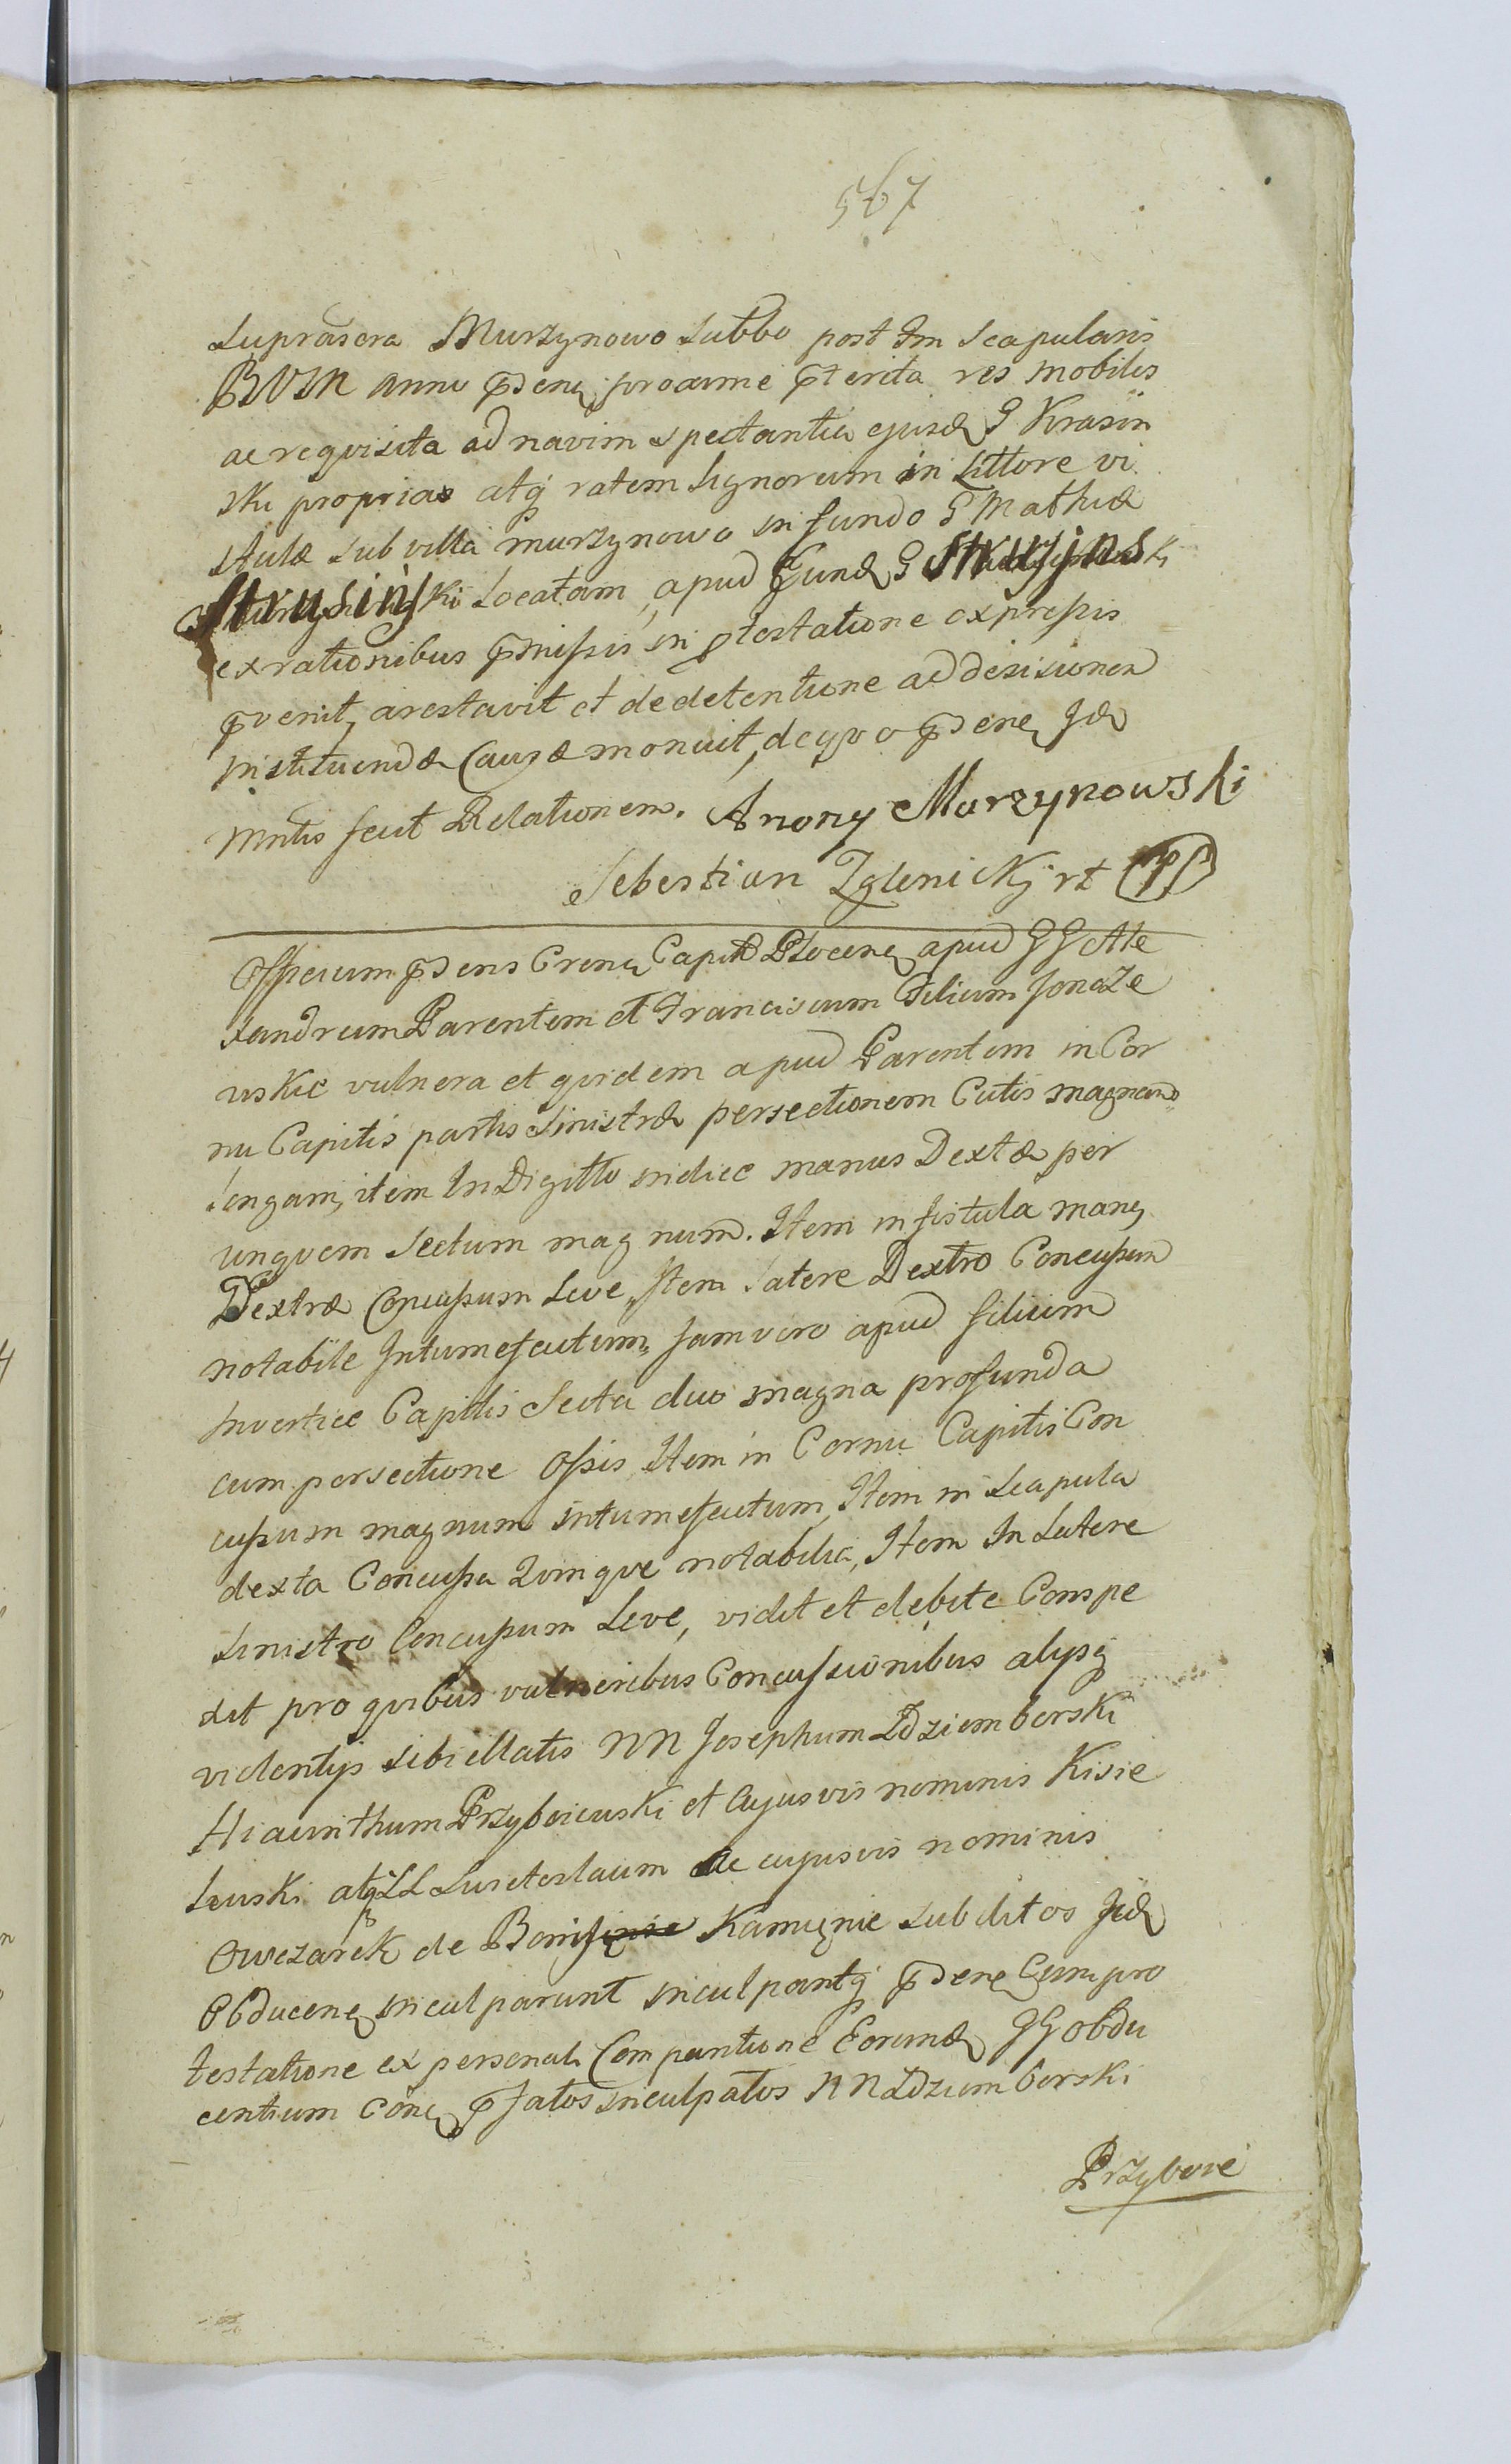 567
Suprascra Murzynowo Sabbo post Fm Scapularis
BVM anni pdenꝫ proxime pterita res mobiles
ac reqvisita ad navim spectantia ejusd G Krasin
ski proprias atq ratem lignorum in Littore vi
stulæ sub villa murzynowo in fundo G Mathiæ
Strusinski Locatam, apud Eund G Strusinski
ex rationibus pmissis in ptestatione expressis
pvenit, arestavit et de detentione ad decisionem
instituendæ Causæ monuit, de qvo pdenꝫ Jd
Mntis fecit Relationem. Antony Murzynowski
Sebestian Zglenickj rt
Officium pdens Crenꝫ Capit Plocenꝫ apud GG Ale
xandrum Parentem et Franciscum Filium Jonaze
wskie vulnera et qvidem apud Parentem in Cor
nu Capitis partis Sinistræ persectionem Cutis magnam
longam, item In Digitto indice manus Dextæ per
ungvem Sectum magnum. Item in fistula manꝫ
Dextræ Concussum Leve, Item Latere Dextro Concussum
notabile Intumefcutum, Jam vero apud filium
In vertice Capitis Secta duo magna profunda
cum persectione Ossis Item in Cornu Capitis Con
cussum magnum intumefcutum, Item in Scapula
dexta Concussa Qvinqve notabilia, Item In Latere
Sinistro Concussum Leve, vidit et debite Conspe
xit pro qvibus vulneribus Concussionibus alysq
violentys sibi illatis NN Josephum Zdziemborski
Hiacinthum Przyboiewski et Cujusvis nominis Kisie
lewski atq LL ac cujusvis nominis
Owczarek de Bonis Kamięnie subditos Jid
Obducenꝫ inculparunt inculpantq pdenꝫ Cum pro
testatione ex personali Compantione Eorund GG obdu
centium Conꝫ pfatos inculpatos NN Zdziemborski
Przyboie